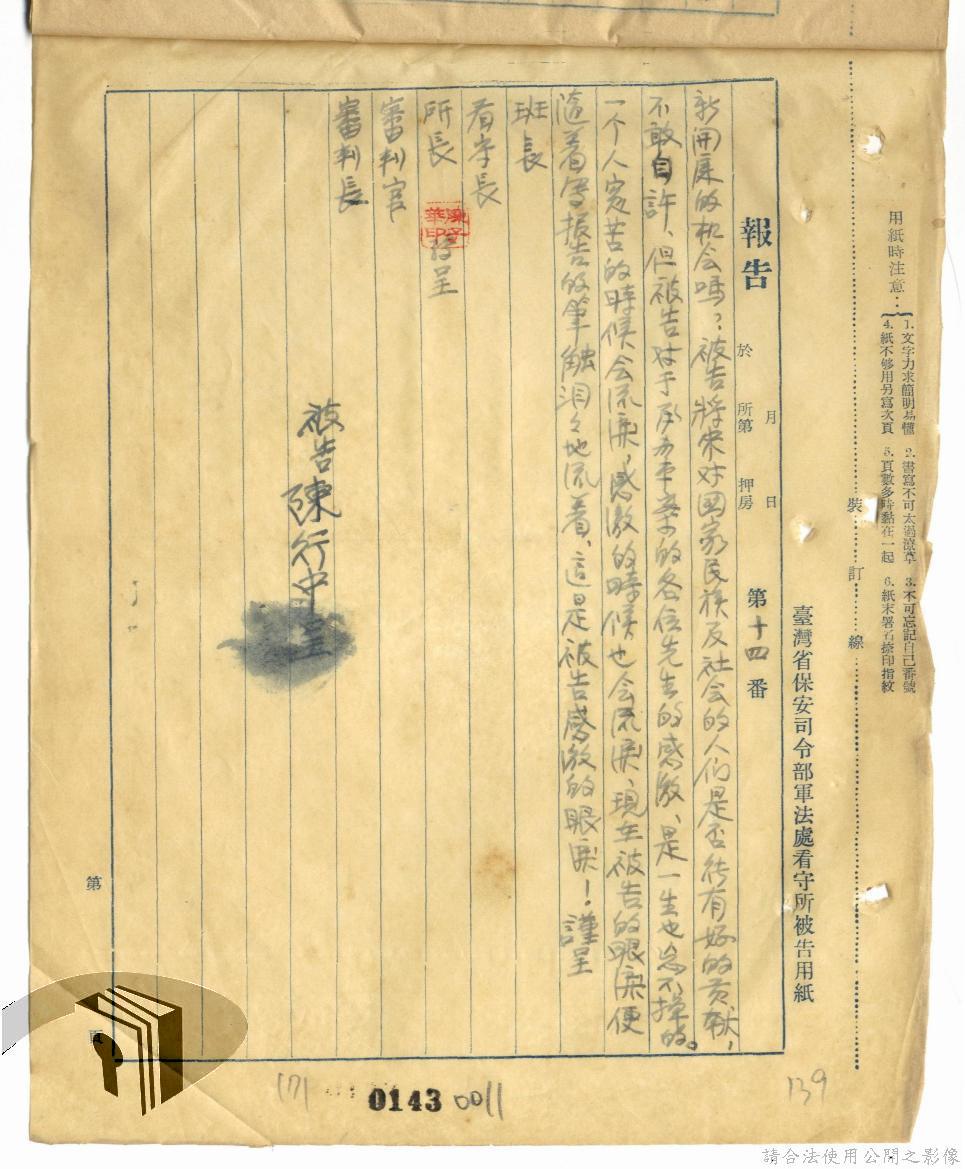 用紙時注意：
1.文字力求簡明易懂　2.書寫不可太過潦草　3.不可忘記自己番號
4.紙不够用另寫次頁　5.頁數多時黏在一起　6.紙末署名捺印指紋
裝訂線
臺灣省保安司令部軍法處看守所被告用紙
報告　於　月　日　所第　押房　第十四番
新開庭的机会嗎？被告將來对国家民族及社会的人们是否能有好的贡献，
不敢自許、但被告对于承办本案的各位先生的感激、是一生也忘不掉的。
一个人寃苦的時候会流淚，感激的時候也会流淚、現在被告的眼淚便
隨着寫報告的筆触泪々地流着、這是被告感激的眼淚！謹呈
班長
看守長
所長　轉呈
審判官
審判長
被告陳行中呈
第　頁
171
0143
0011
139
請合法使用公開之影像